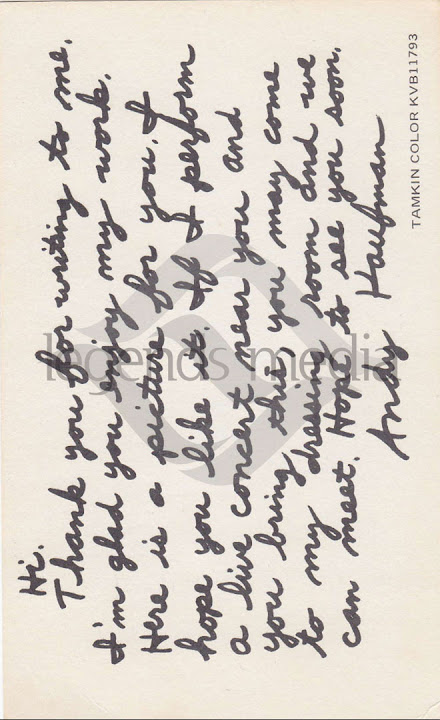 Hi.
Thank you for writing to me.
I'm glad you enjoy my work.
Here is a picture for you. I
hope you like it. If I perform
a live concert near you and
you bring this, you may come
to my dressing room and we
can meet. Hope to see you soon.
Andy Kaufman
TAMKIN COLOR KVB11793
legends media